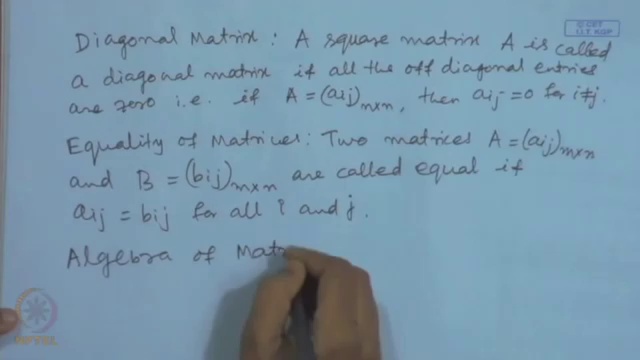 © CET
I.I.T. KGP
Diagonal Matrix : A square matrix A is called
a diagonal matrix if all the off diagonal entries
are zero i.e. if A = (aij)n×n, then aij = 0 for i≠j.
Equality of Matrices: Two matrices A = (aij)m×n
and B = (bij)m×n are called equal if
aij = bij for all i and j.
Algebra of Mat
NPTEL